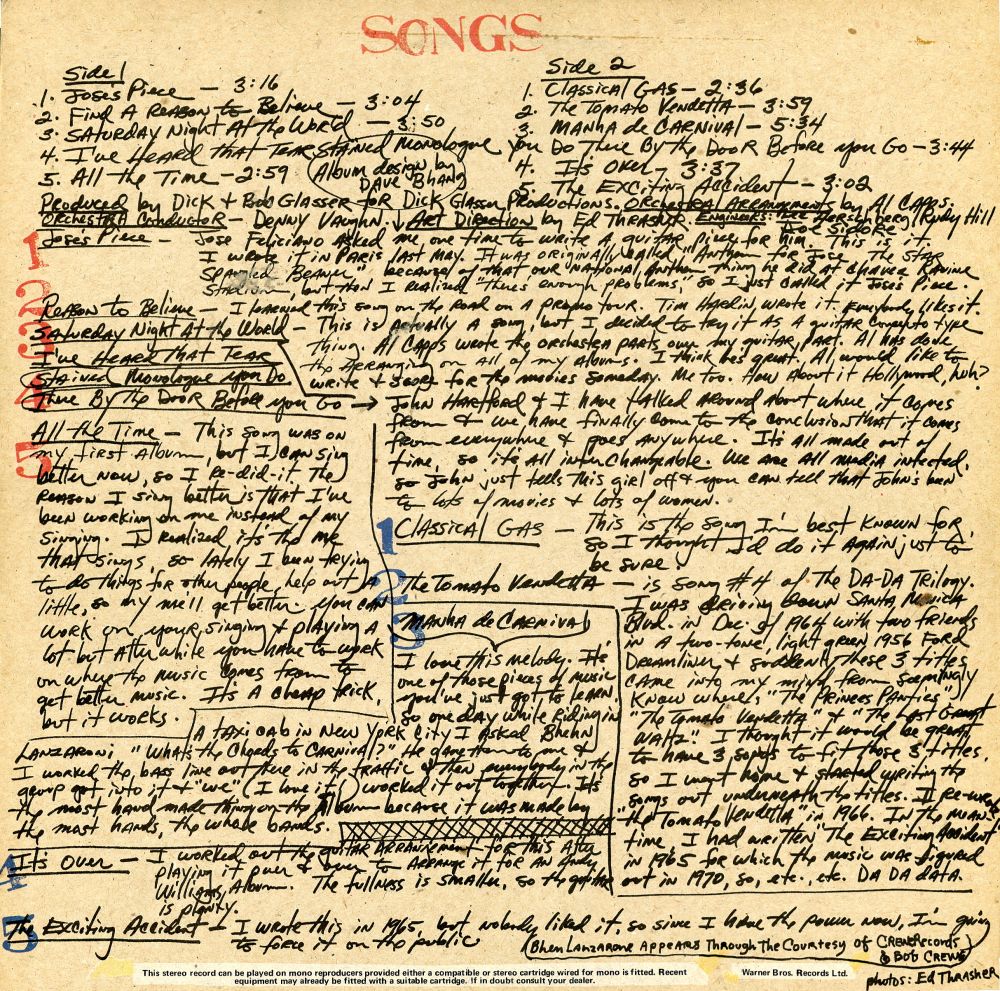 SONGS
Side 1
1. Joses Piece — 3:16
2. Find A Reason to Believe — 3:04
3. Saturday Night At the World — 3:50
4. I've Heard That Tear Stained Monologue you Do There By the Door Before you Go — 3:44
5. All the Time — 2:59
Album design by
Dave Bhang
Side 2
1. Classical Gas — 2:36
2. The Tomato Vendetta — 3:59
3. Manha de Carnival — 5:34
4. It's Over — 3:37
5. The Exciting Accident — 3:02
Produced by Dick + Bob Glasser for Dick Glasser Productions. Orchestral Arrangements by Al Capps.
Orchestra Conductor — Denny Vaughn. Art Direction by Ed Thrasher. Engineers: Lee Herschberg, Rudy Hill
Joe Sidore
1
Jose's Piece — Jose Feliciano asked me one time to write a guitar piece for him. This is it.
I wrote it in Paris last May. It was originally called "Anthem for Jose. The Star
Spangled Beaner" because of that our national anthem thing he did at Chavez Ravine
Stadium, but then I realized "there's enough problems," so I just called it Joses Piece.
2
Reason to Believe — I learned this song on the road on a promo tour. Tim Hardin wrote it. Everybody likes it.
3
Saturday Night At the World — This is actually a song, but I decided to try it as a guitar concerto type
thing. Al Capps wrote the orchestra parts over my guitar part. Al has done
the arranging on all of my albums. I think hes great. Al, would like to
write + score for the movies someday. Me too. How about it Hollywood, huh?
4
I've Heard That Tear
Stained Monologue you Do
There By the Door Before you Go →
John Hartford + I have talked around about where it comes
from + we have finally come to the conclusion that it comes
from everywhere + goes anywhere. It's all made out of
time, so it's all interchangeable. We are all media infected,
so John just tells this girl off + you can tell that John's been
to lots of movies + lots of women.
5
All the Time — This song was on
my first album, but I can sing
better now, so I re-did-it. The
reason I sing better is that I've
been working on me instead of my
singing. I realized it's the me
that sings, so lately I been trying
to do things for other people, help out a
little, so my me'll get better. You can
work on your singing + playing a
lot but after while you have to work
on where the music comes from to
get better music. It's a cheap trick,
but it works.
1
Classical Gas — This is the song I'm best known for,
so I thought I'd do it again just to
be sure
2
The Tomato Vendetta — is song #4 of the DA-DA Trilogy.
I was driving down Santa Monica
Blvd. in Dec. of 1964 with two friends
in a two-tone, light green 1956 Ford
Dreamliner + suddenly these 3 titles
came into my mind from seemingly
know where, "The Princes Panties"
"The Tomato Vendetta" + "The Last Great
Waltz". I thought it would be great
to have 3 songs to fit those 3 titles.
So I went home + started writing the
songs out underneath the titles. I re-wrote
"The Tomato Vendetta" in 1966. In the mean
time, I had written "The Exciting Accident"
in 1965 for which the music was figured
out in 1970, so, etc., etc. DA DA data.
3
Manha de Carnival
I love this melody. It's
one of those pieces of music
you've just got to learn,
so one day while riding in
a taxi cab in New York City I asked Bhen
Lanzaroni "What's the chords to Carnival?" He gave them to me +
I worked the bass line out there in the traffic + then everybody in the
group got into it + "we" (I love it) worked it out together. It's
the most hand made thing on the album because it was made by
the most hands, the whole bands.
4
It's Over — I worked out the guitar arrangement for this after
playing it over + over to arrange it for an Andy
Williams Album. The fullness is smaller, so the guitar
is plenty.
5
The Exciting Accident — I wrote this in 1965, but nobody liked it, so since I have the power now, I'm going
to force it on the public
(Bhen Lanzarone Appears Through The Courtesy of Crewe Records
& Bob Crewe)
photos: Ed Thrasher
This stereo record can be played on mono reproducers provided either a compatible or stereo cartridge wired for mono is fitted. Recent
equipment may already be fitted with a suitable cartridge. If in doubt consult your dealer.
Warner Bros. Records Ltd.